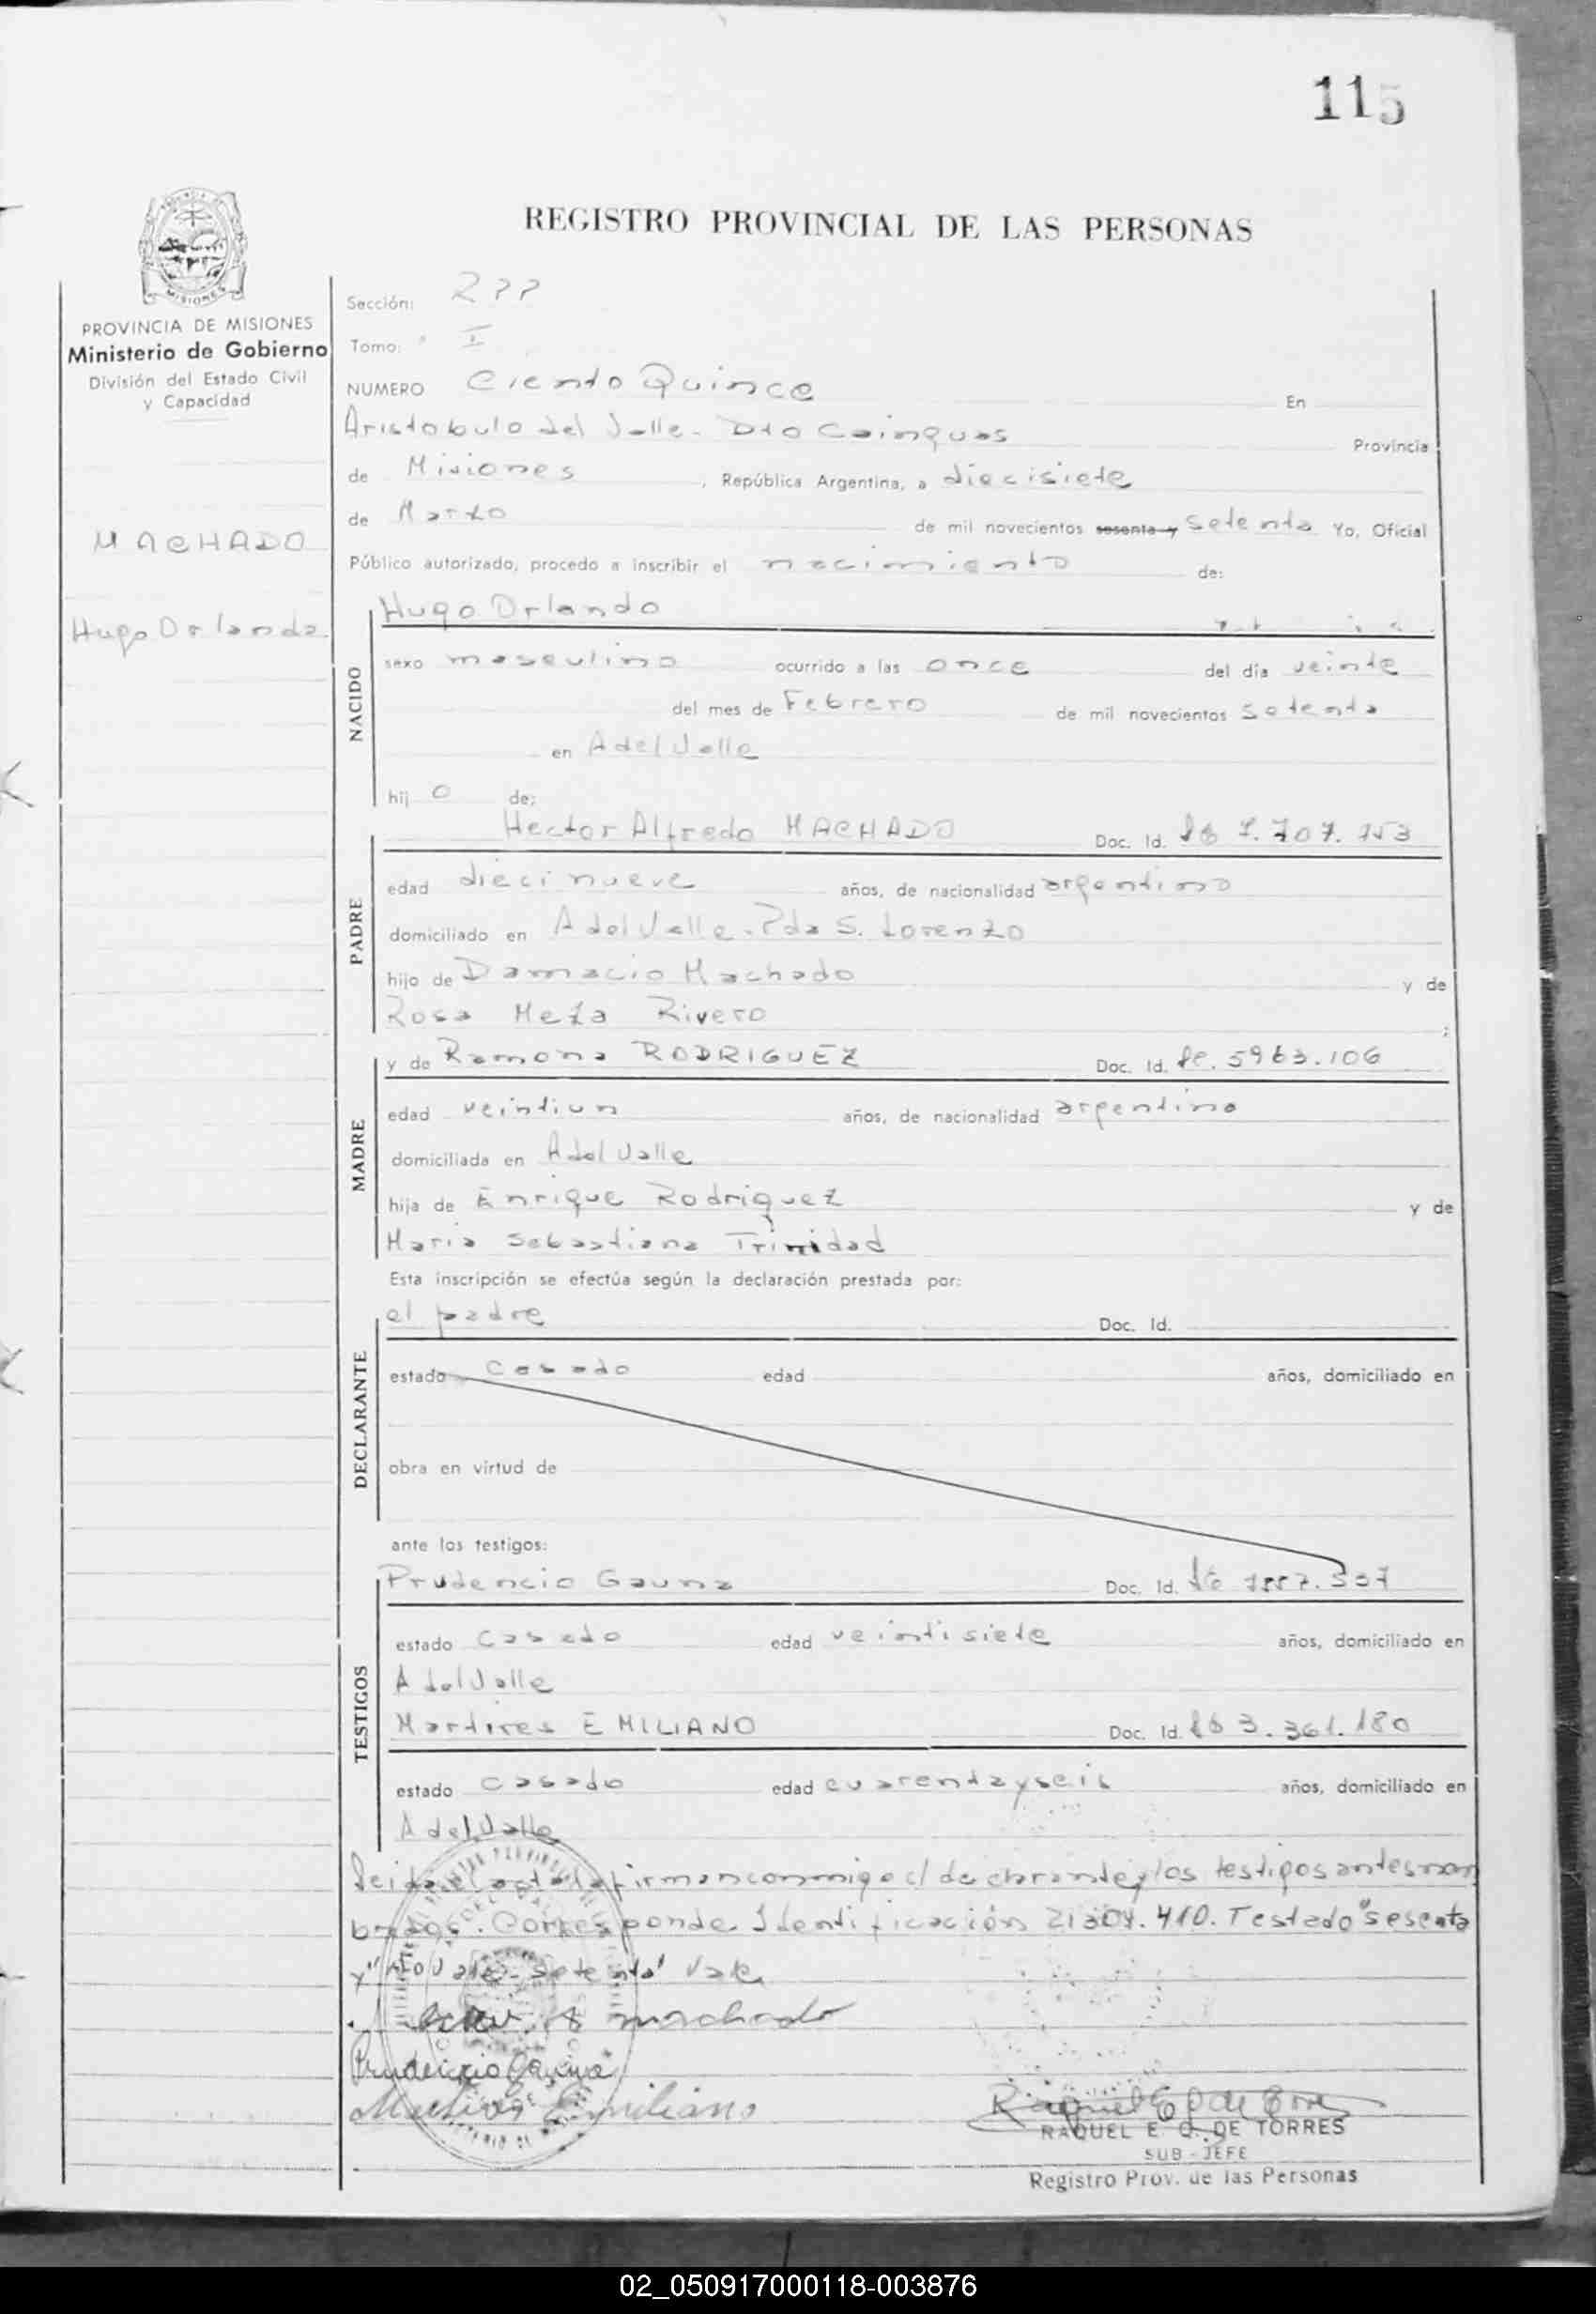 115
REGISTRO PROVINCIAL DE LAS PERSONAS
PROVINCIA DE MISIONES
Ministerio de Gobierno
División del Estado Civil
y Capacidad
MACHADO
Hugo Orlando
Sección: RPP
Tomo: I
NUMERO Ciento Quince En
Aristobulo del Valle - Dto Cainguas Provincia
de Misiones, República Argentina, a diecisiete
de Marzo de mil novecientos sesenta y Setenta Yo, Oficial
Público autorizado, procedo a inscribir el nacimiento de:
Hugo Orlando
NACIDO
sexo masculino ocurrido a las once del día veinte
del mes de Febrero de mil novecientos setenta
en A del Valle
hij o de:
PADRE
Hector Alfredo MACHADO Doc. Id. 7.707.153
edad diecinueve años, de nacionalidad argentino
domiciliado en A del Valle - Pda S. Lorenzo
hijo de Damacio Machado y de
Rosa Meza Rivero ;
MADRE
y de Ramona RODRIGUEZ Doc. Id. 5963.106
edad veintiun años, de nacionalidad argentina
domiciliada en A del Valle
hija de Enrique Rodriguez y de
Maria Sebastiana Trinidad
Esta inscripción se efectúa según la declaración prestada por:
DECLARANTE
el padre Doc. Id.
estado casado edad años, domiciliado en
obra en virtud de
ante los testigos:
TESTIGOS
Prudencio Gauna Doc. Id.
estado casado edad veintisiete años, domiciliado en
A del Valle
Martires EMILIANO Doc. Id. 3.361.180
estado casado edad cuarenta y seis años, domiciliado en
A del Valle
Leida el acta la firman conmigo el declarante y los testigos antes nom
brados. Corresponde Identificación 21304.410. Testado "sesenta
y" No vale - setenta" Vale
Machado
Prudencio Gauna
Martires Emiliano
RAQUEL E. Q. DE TORRES
SUB-JEFE
Registro Prov. de las Personas
02_050917000118-003876